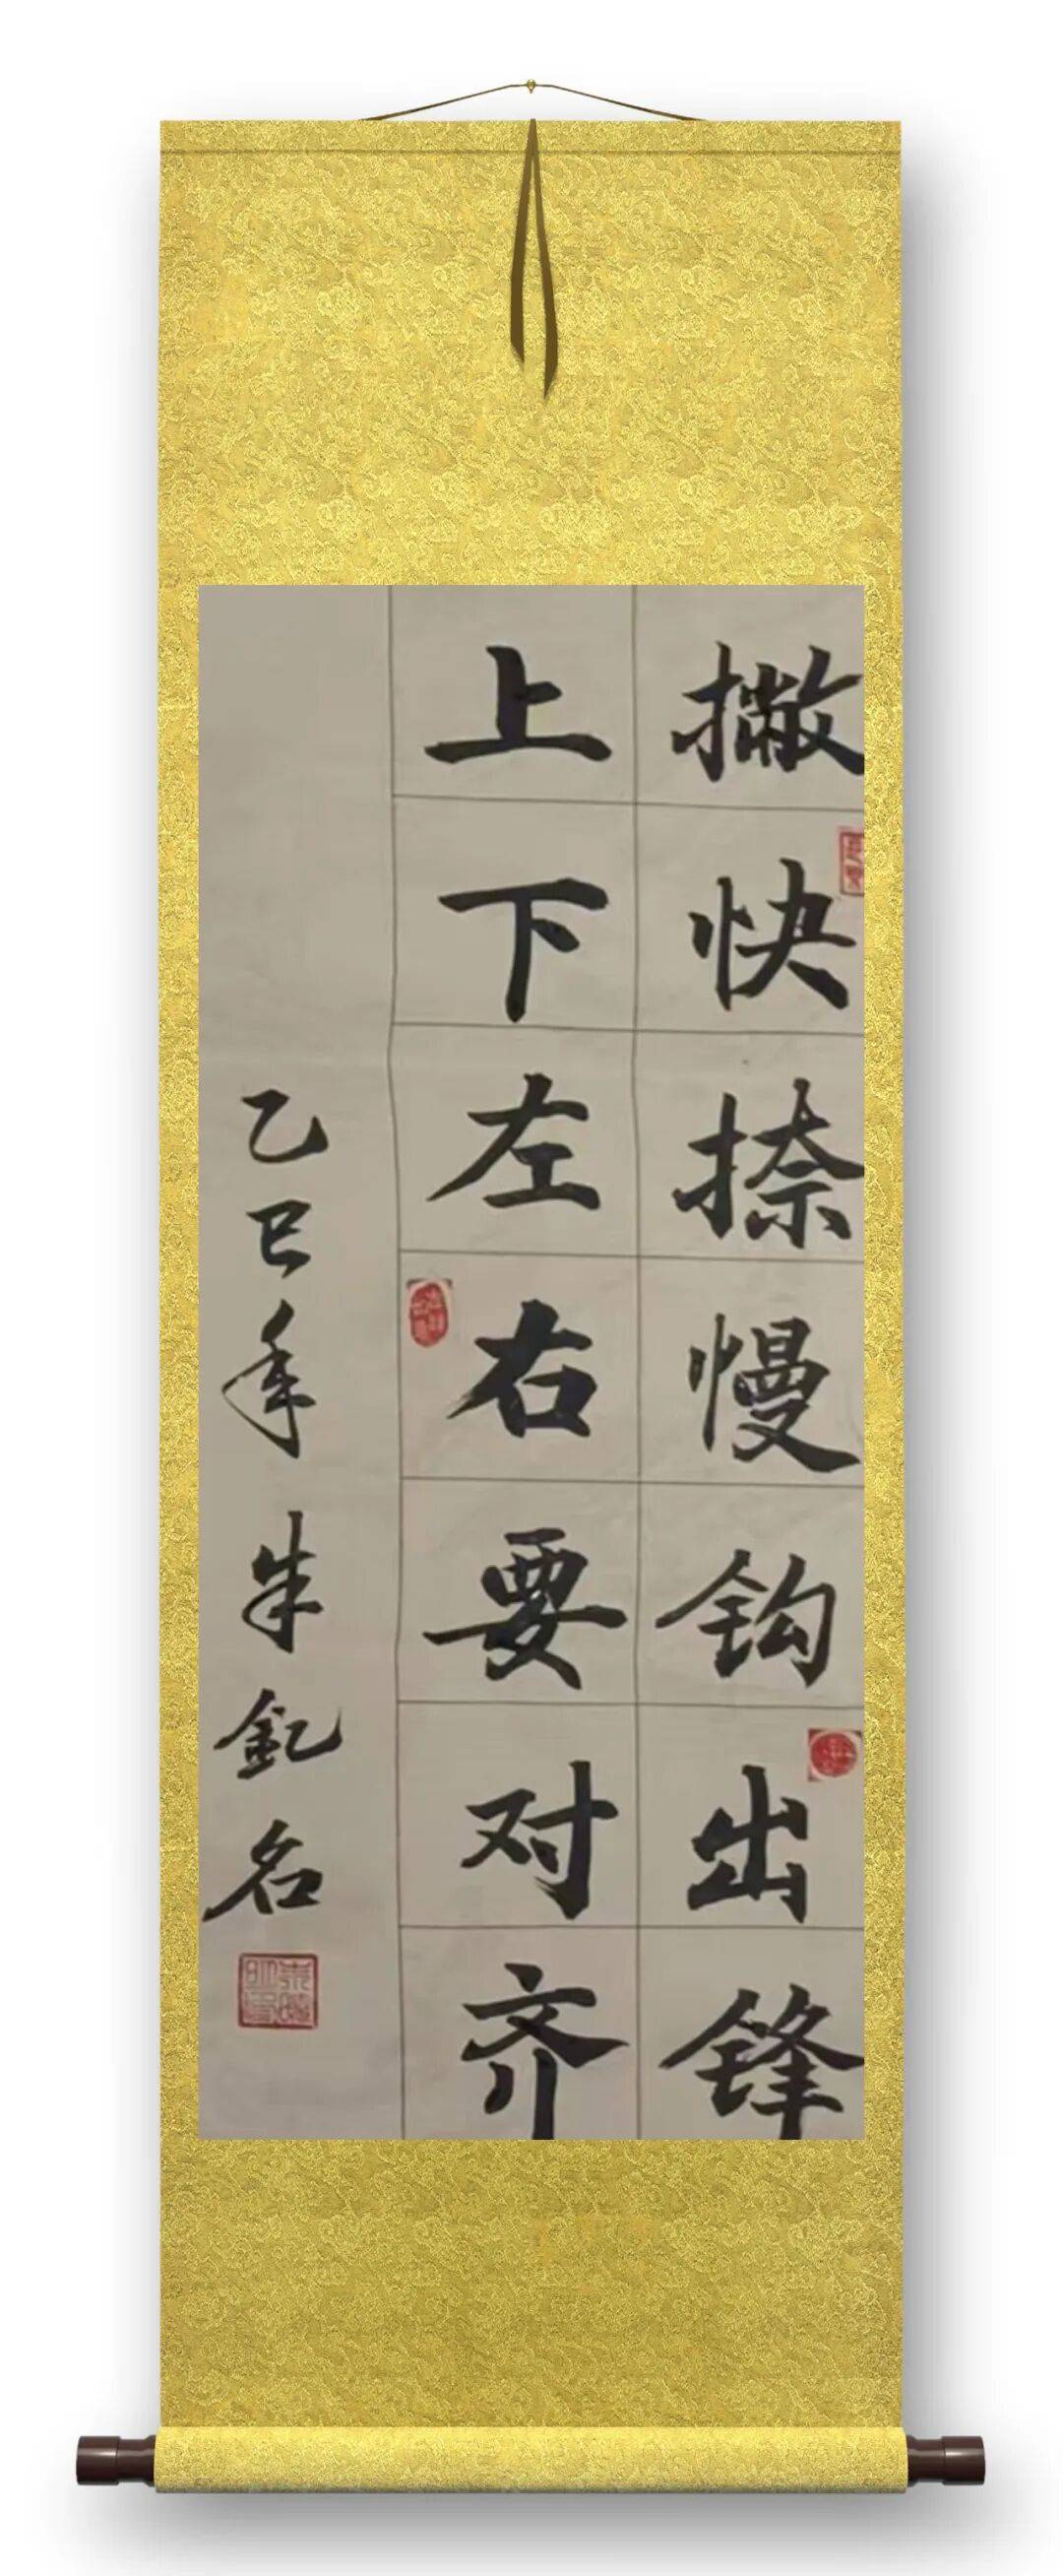 撇快捺慢钩出锋
上下左右要对齐
乙巳年朱釓名